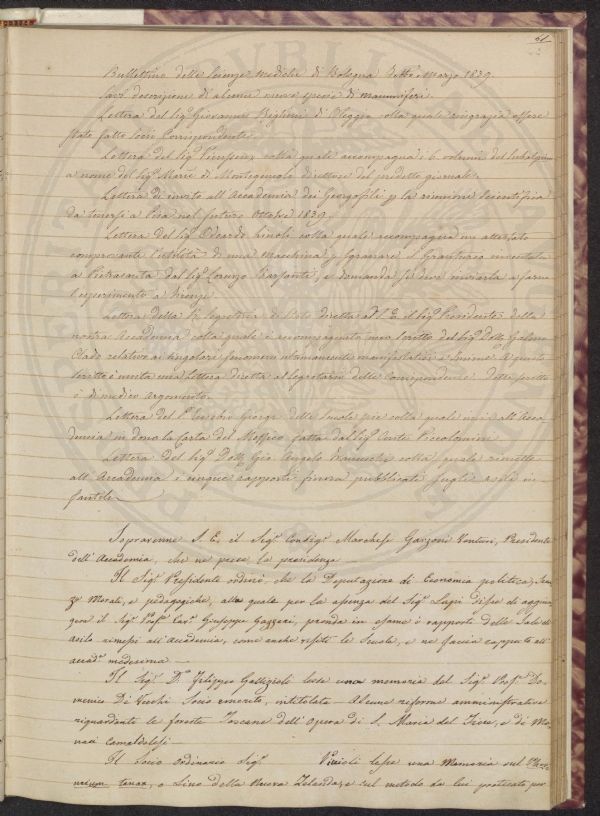 61
Bullettino delle Scienze Mediche di Bologna detto Marzo 1839.
descrizione di alcune nuove specie di mammiferi.
Lettera del Sig.r Giovanni di Oleggio colla quale ringrazia essere
stato fatto Socio Corrispondente.
Lettera del Sig.r Vieusseux colla quale accompagna i 6 volumi del
a nome del Sig.r di direttore del predetto giornale.
Lettera di invito all'Accademia dei Georgofili p la riunione Scientifica
da tenersi a Pisa nel futuro Ottobre 1839.
Lettera del Sig.r Odoardo Linoli colla quale accompagna un attestato
comprovante l'utilità di una Macchina p sgranare il Granturco inventata
a Pietrasanta dal Sig.r Lorenzo e domanda se deve inviarla a farne
l'esperimento a Firenze.
Lettera della R. Segreteria di Stato diretta a S. E. il Sig.r Presidente della
nostra Accademia colla quale è accompagnato uno scritto del Sig.r Dott. Galeno
relativo ai singolari fenomeni ultimamente manifestatisi a A questo
scritto è unita una Lettera diretta al Segretario delle Corrispondenze. Detto scritto
è di medico argomento.
Lettera del P. Giorgi delle Scuole Pie colla quale invia all'Acca
demia in dono la Carta del Messico fatta dal Sig.r Conte Piccolomini
Lettera del Sig.r Dott. Gio. Angelo colla quale rimette
all'Accademia i cinque rapporti finora pubblicati sugli asili in
fantili
Sopravvenne S. E. il Sig.r Consig.r Marchese Garzoni Venturi, Presidente
dell'Accademia, che ne prese la presidenza
Il Sig.r Presidente ordinò, che la Deputazione di Economia politica, Scien
ze Morali, e pedagogiche, alla quale per la assenza del Sig.r Lapi disse di aggiun
gere il Sig.r Prof. Cav.r Giuseppe Gazzeri, prenda in esame i rapporti delle Sale di
asilo rimessi all'Accademia, come anche visiti le Scuole, e ne faccia rapporto all'
accad.a medesima
Il Sig.r D.r Filippo Gallizioli lesse una memoria del Sig.r Prof.r Do
menico De Vecchi Socio emerito, intitolata Alcune riforme amministrative
riguardanti le foreste Toscane dell'Opera di S. Maria del Fiore, e di Mo
naci Camaldolesi
Il Socio Ordinario Sig.r lesse una Memoria sul Phor
mium tenax, o Lino della Nuova Zelanda, e sul metodo da lui praticato per